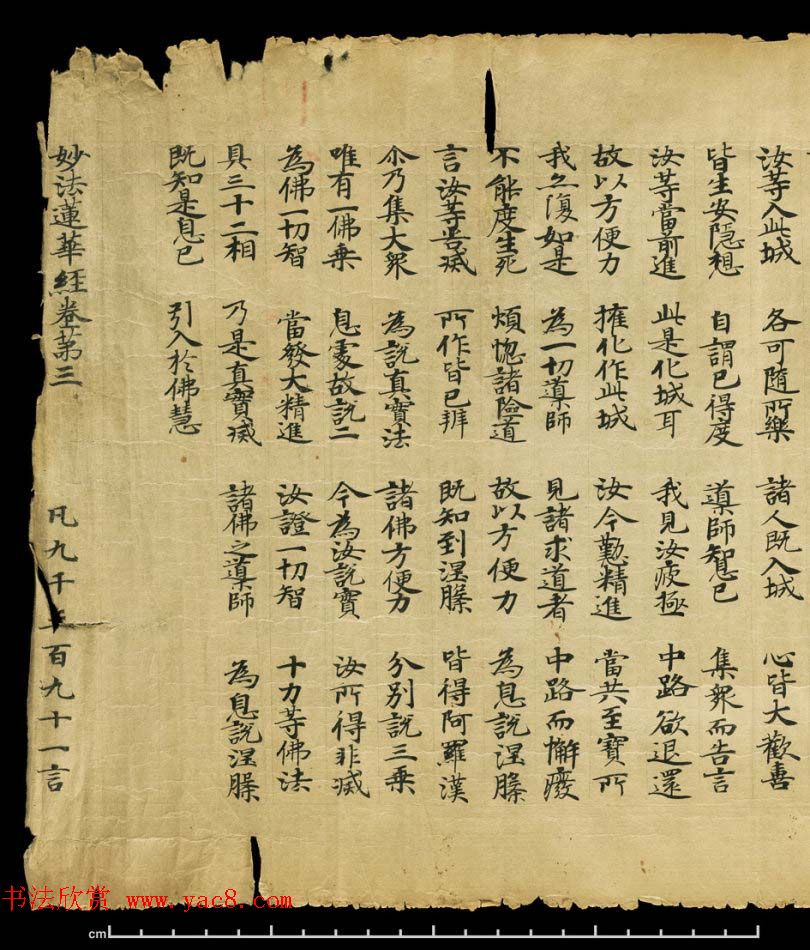 汝等入此城　各可隨所樂　諸人既入城　心皆大歡喜
皆生安隱想　自謂已得度　導師知息已　集衆而告言
汝等當前進　此是化城耳　我見汝疲極　中路欲退還
故以方便力　權化作此城　汝今勤精進　當共至寶所
我亦復如是　為一切導師　見諸求道者　中路而懈廢
不能度生死　煩惱諸險道　故以方便力　為息說涅槃
言汝等苦滅　所作皆已辦　既知到涅槃　皆得阿羅漢
尒乃集大衆　為說真實法　諸佛方便力　分別說三乘
唯有一佛乘　息處故說二　今為汝說實　汝所得非滅
為佛一切智　當發大精進　汝證一切智　十力等佛法
具三十二相　乃是真實滅　諸佛之導師　為息說涅槃
既知是息已　引入於佛慧
妙法蓮華經卷第三　凡九千　百九十一言
书法欣赏 www.yac8.com
cm